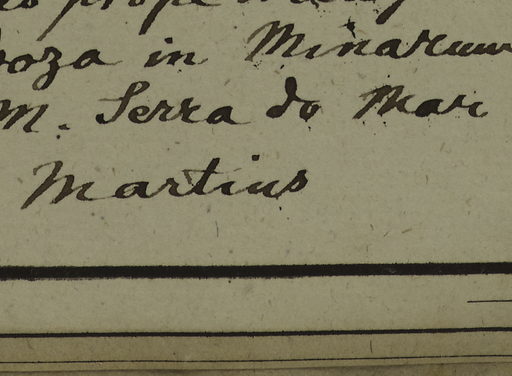 prope
oza in Minarum
M. Serra do Mar
Martius